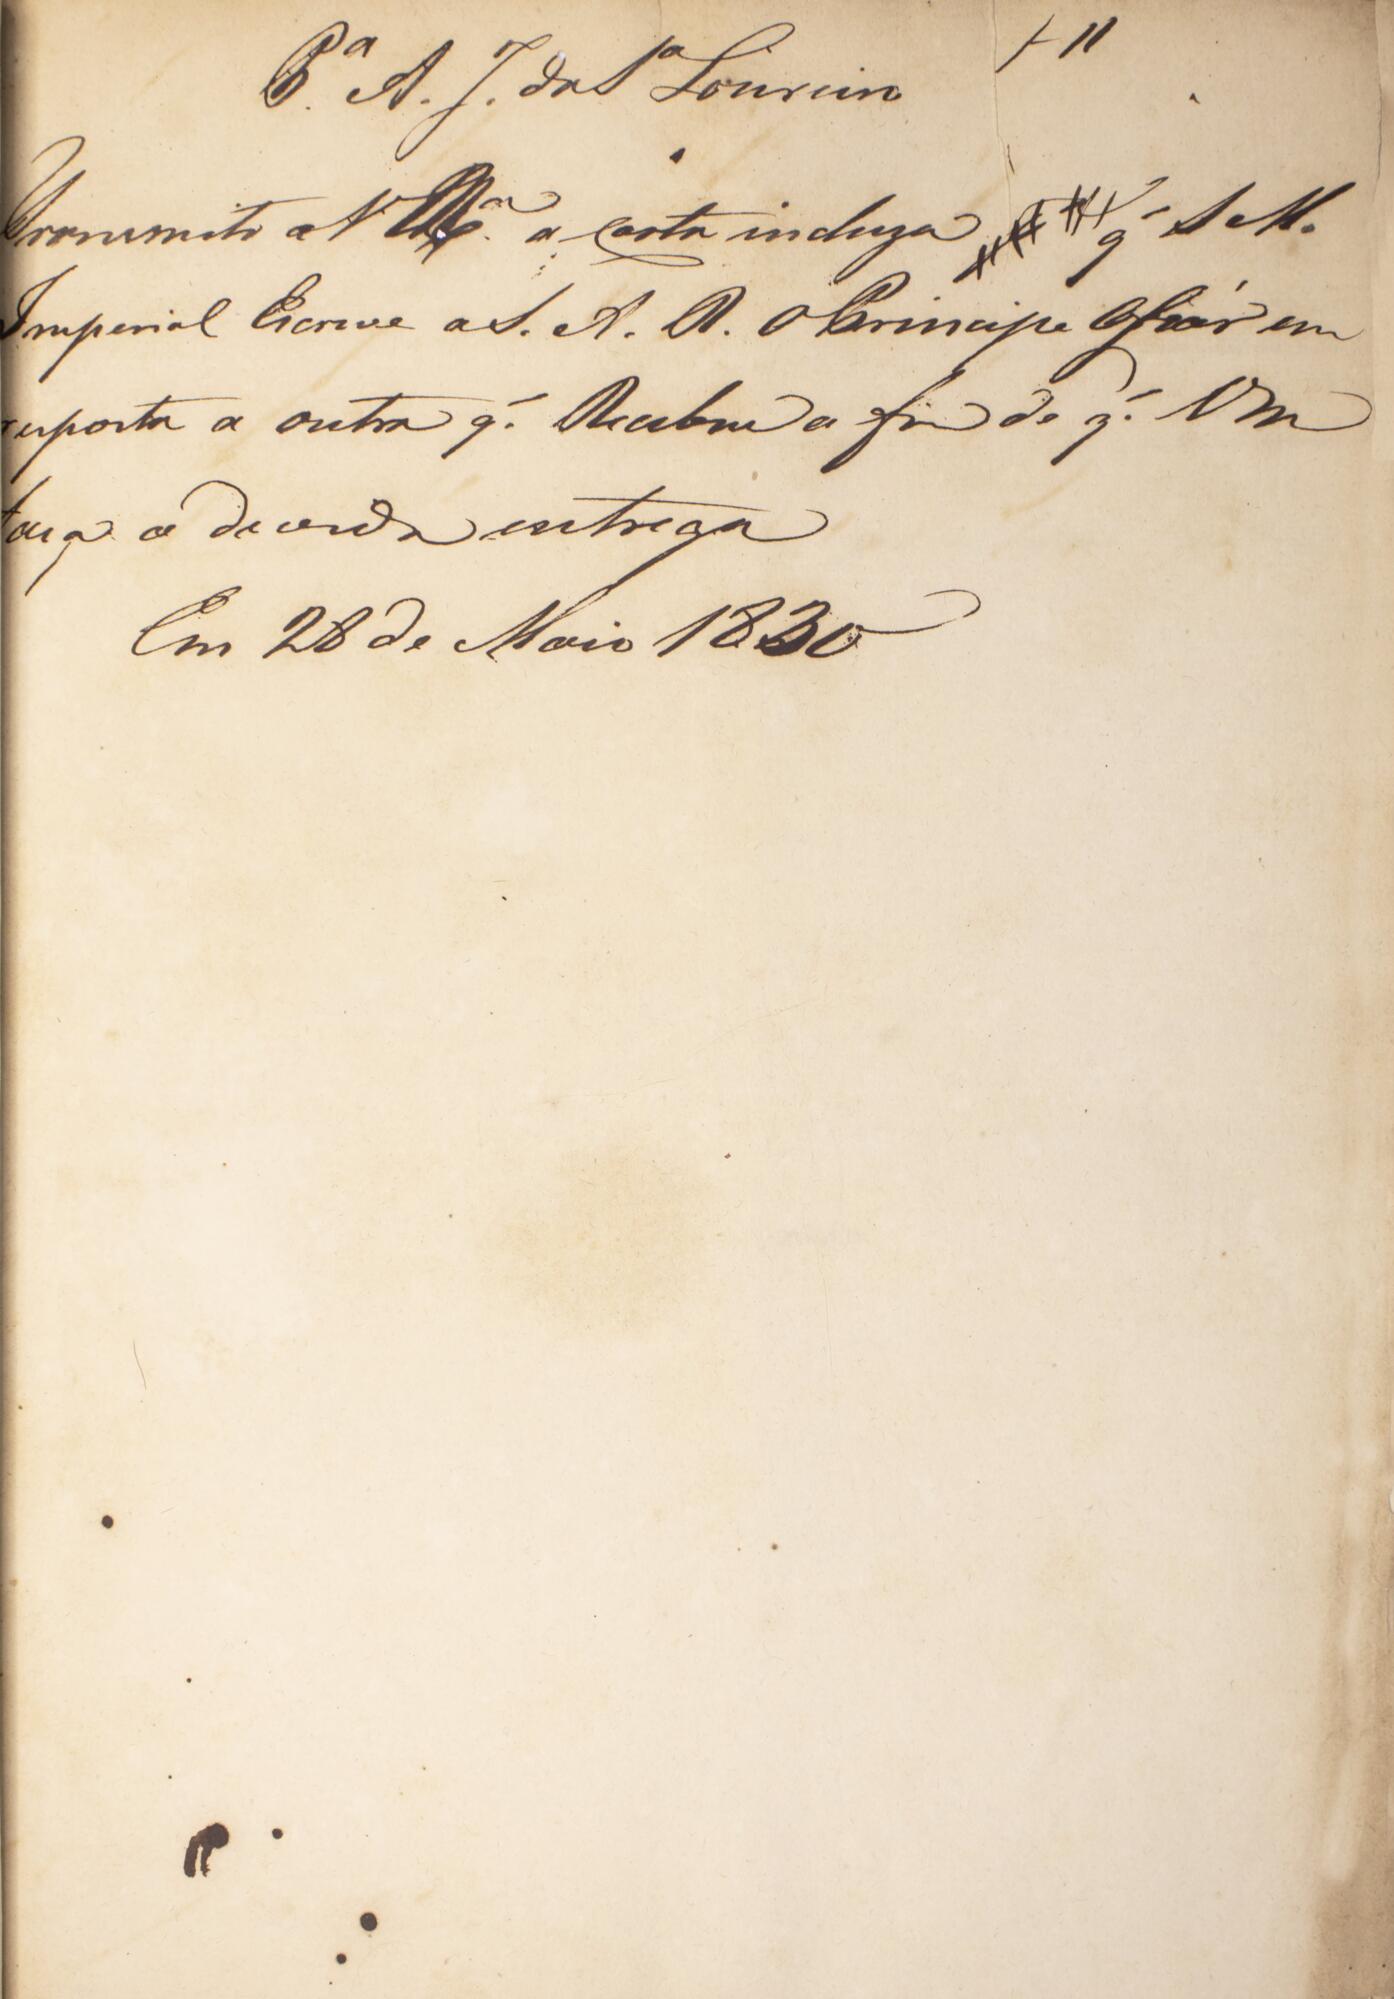 + 11
P.ª A. J. da S.ª Loureiro
Transmito a V a carta incluza q' S M.
Imperial Escreve a S. A. R. o Principe em
resposta a outra q'. Recebeu a fim de q'. Vm
faça a devida entrega
Em 28 de Maio 1830